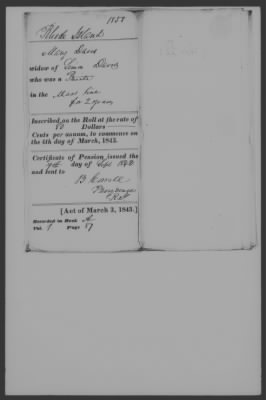 1857
Rhode Island
Mary Davis
widow of Simon Davis
who was a Private
in the Mass line
for 2 years
Inscribed on the Roll at the rate of
80 Dollars
Cents per annum, to commence on
the 4th day of March, 1843.
Certificate of Pension issued the
day of Sept 1843
and sent to
B. Cowell
Providence
R.I.
[Act of March 3, 1843.]
Recorded in Book A
Vol. 1 Page 57